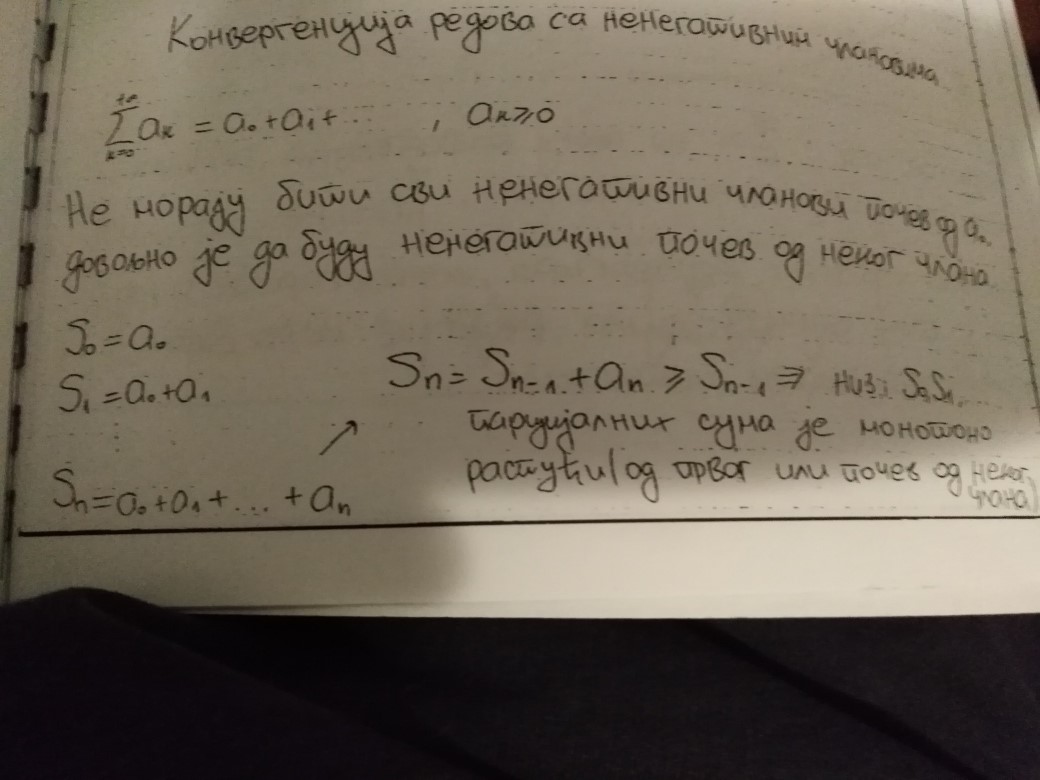 Конвергенција редова са ненегативним члановима
+∞
∑aₖ = a₀ + a₁ + ⋯ , aₖ ≥ 0
k=0
Не морају бити сви ненегативни чланови почев од a₀,
довољно је да буду ненегативни почев од неког члана
S₀ = a₀
S₁ = a₀ + a₁
⋮
Sₙ = a₀ + a₁ + ... + aₙ
↗
Sₙ = Sₙ₋₁ + aₙ ≥ Sₙ₋₁ ⇒ низ: S₀S₁, ...
парцијалних сума је монотоно
растући (од првог или почев од неког
члана)